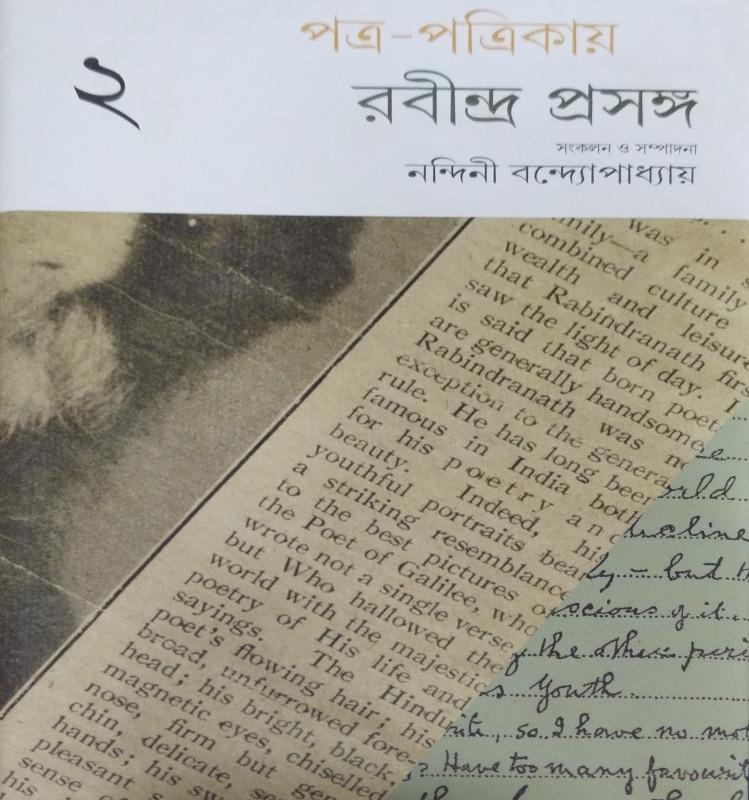 পত্র-পত্রিকায়
২
রবীন্দ্র প্রসঙ্গ
সংকলন ও সম্পাদনা
নন্দিনী বন্দ্যোপাধ্যায়
was in
family—a family
combined culture
wealth and leisure
that Rabindranath
saw the light of day. I
is said that born poet
are generally handsome
Rabindranath was
exception to the genera
rule. He has long been
famous in India both
for his poetry and
beauty. Indeed, his
youthful portraits bea
a striking resemblance
to the best pictures o
the Poet of Galilee, who
wrote not a single verse
but Who hallowed the
world with the majestic
poetry of His life and
sayings. The Hindu
poet's flowing hair; his
broad, unfurrowed fore-
head; his bright, black,
magnetic eyes, chiselled
nose, firm but
chin, delicate,
hands; his
pleasant
sense
his
but
scious of it.
the other
Youth.
, so I have no
? Have too many favourit